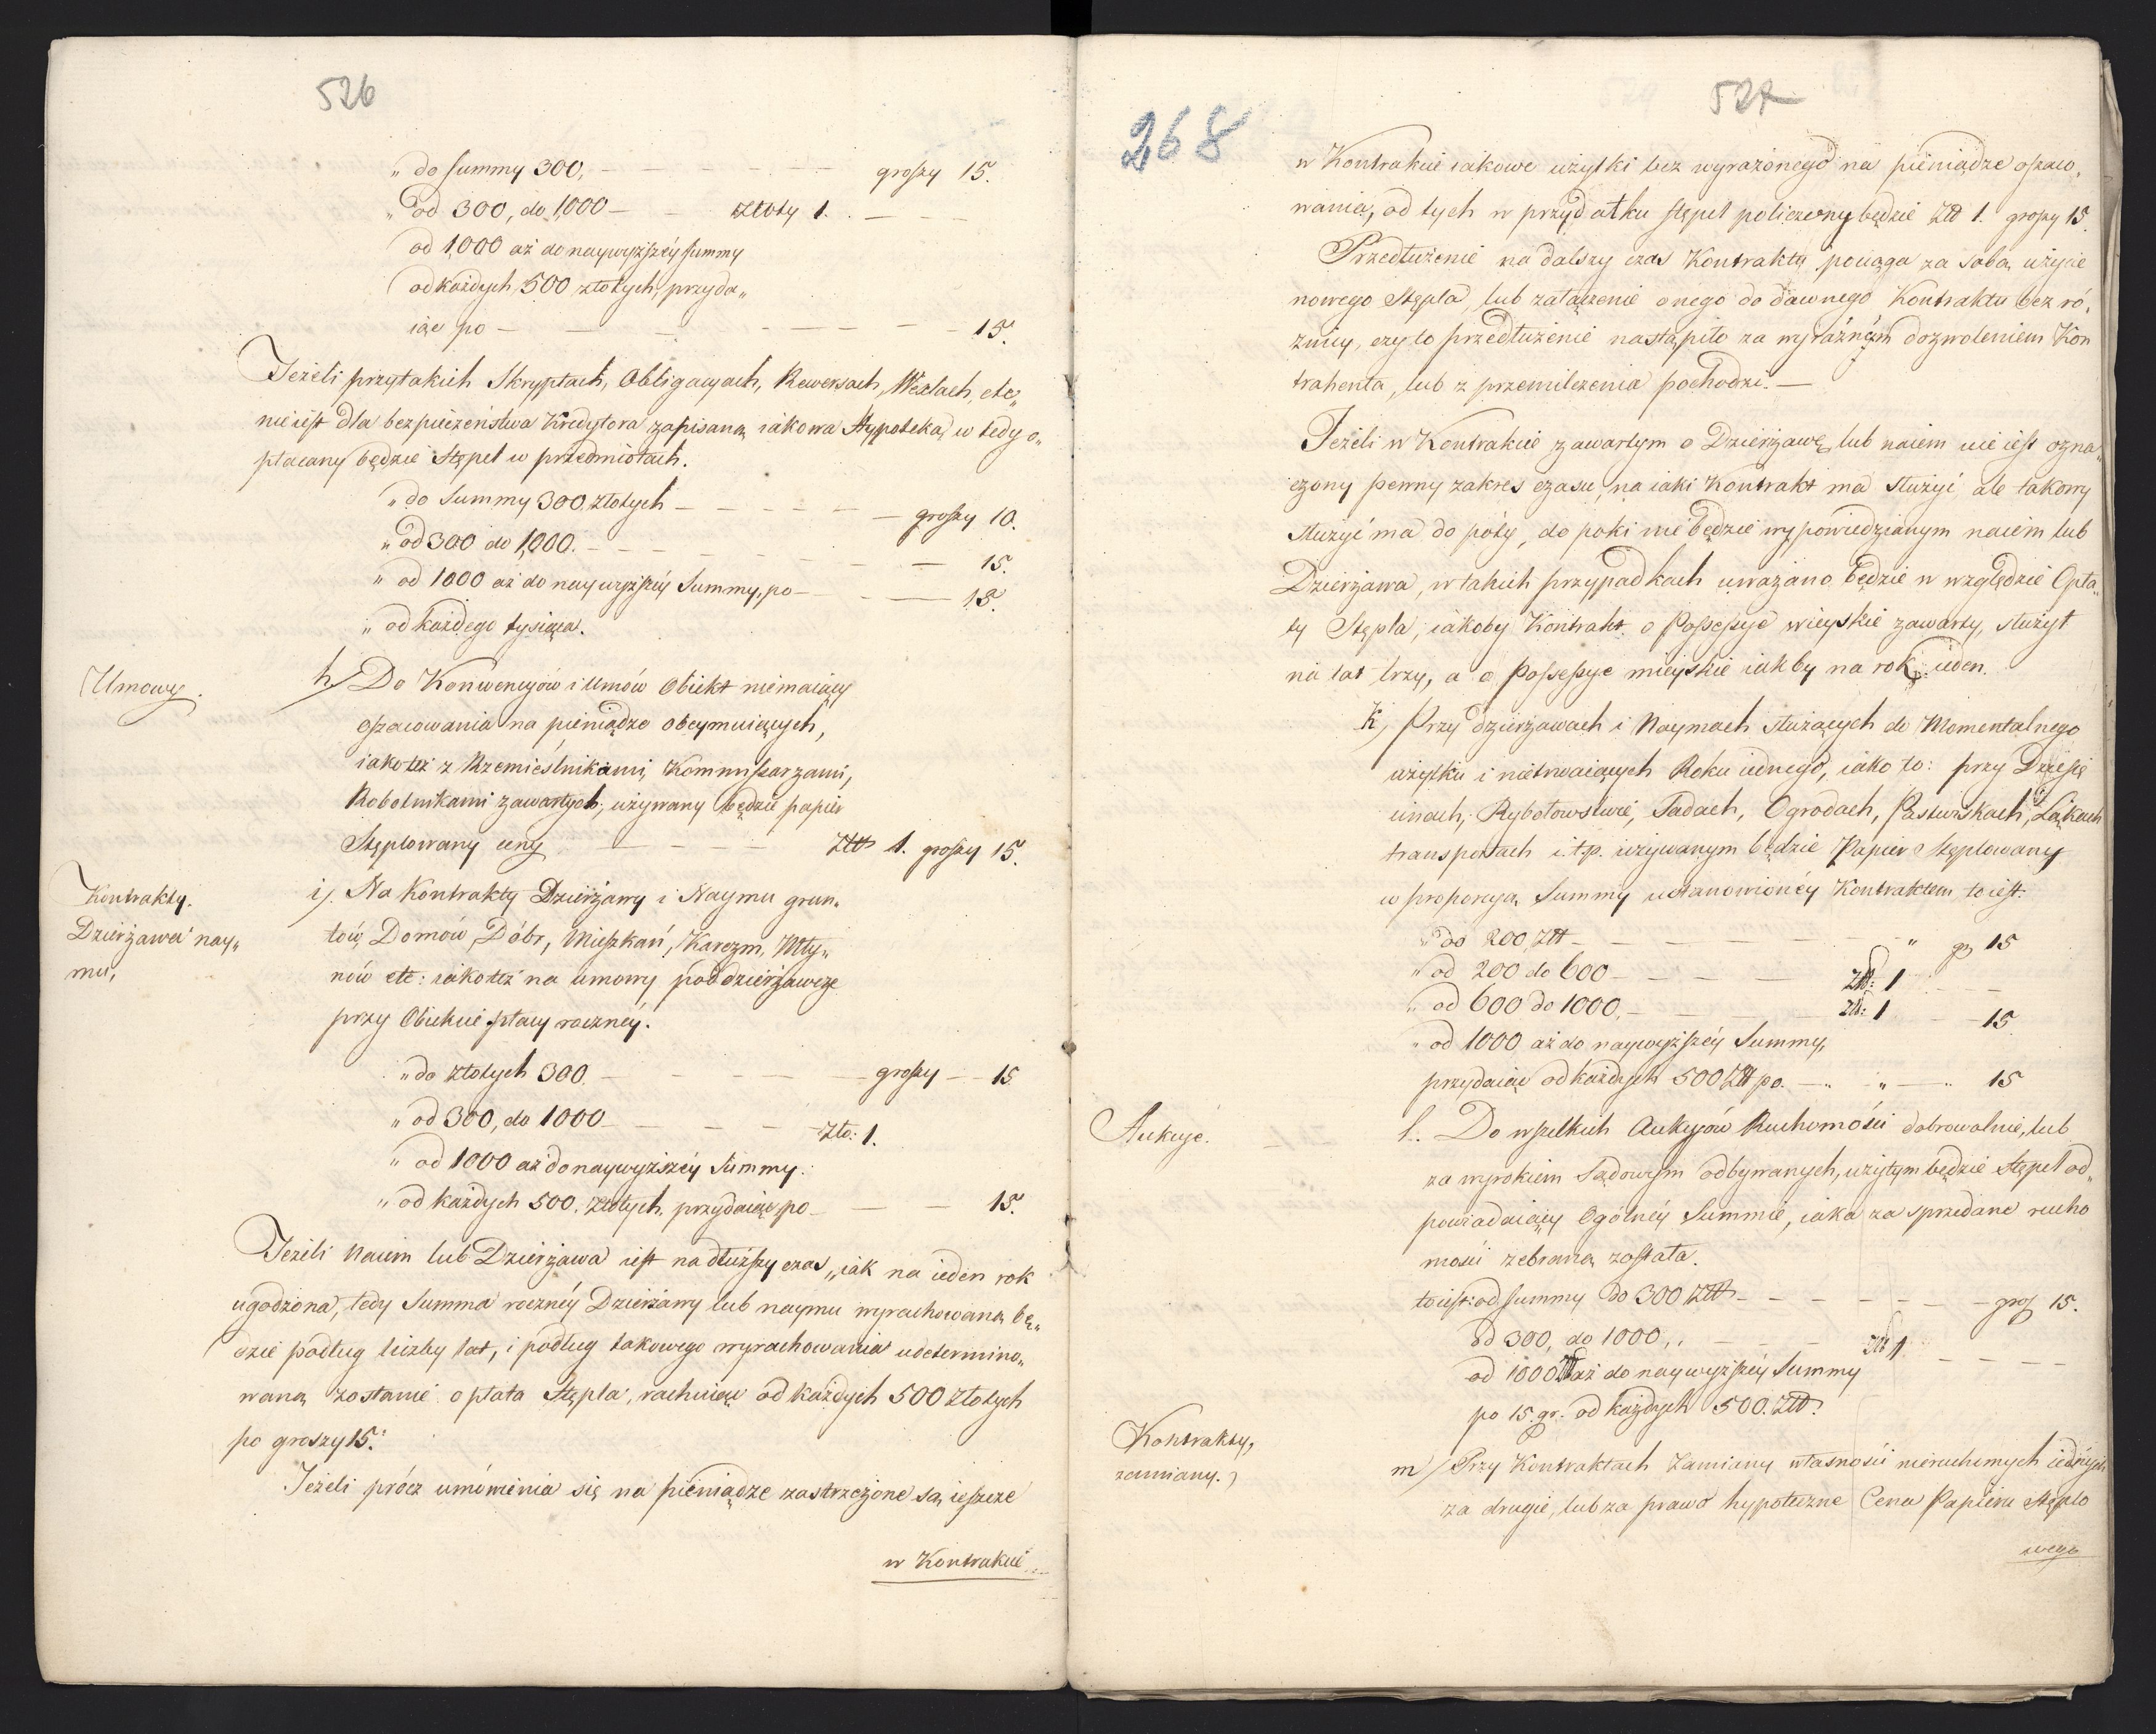 526
„ do summy 300, — — — — — groszy 15.
„ od 300, do 1,000 — — złoty 1. — — —
od 1,000 aż do naywyższéy summy
od każdych 500 złotych, przyda„
iąc po — — — — — — — 15.
Jeżeli przy takich Skryptach, Obligacyach, Rewersach, Wexlach, etc„
nie iest dla bezpieczeństwa Kredytora zapisaną iakowa Hypoteka, w tedy o„
płacany będzie Stępel w przedmiotach.
„ do Summy 300 złotych — — — — — groszy 10.
„ od 300 do 1,000. — — — — — — 15.
„ od 1000 aż do naywyższéy Summy, po — — — 15.
„ od każdego tysiąca.
Umowy.
h/ Do Konwencyów i Umów Obiekt niemaiący
oszacowania na pieniądze obeymuiących,
iakoteż z Rzemieślnikami, Kommissarzami,
Robotnikami zawartych, używany będzie papier
Stęplowany ceny — — — — Złt 1. groszy 15.
Kontrakty.
Dzierżawa nay„
mu,
i/. Na Kontrakty Dzierżawy i Naymu grun„
tów, Domów, Dóbr, Mieszkań, Karczm, Mły„
nów etc: iakoteż na umowy poddzierżawcze
przy Obiekcie płacy roczney.
„ do złotych 300. — — — — groszy — 15
„ od 300, do 1000 — — — — Zło: 1.
„ od 1000 aż do naywyższéy Summy.
„ od każdych 500. złotych. przydaiąc po — — — 15.
Jeżeli Naiem lub Dzierżawa iest na dłuższy czas, iak na ieden rok
ugodzona, tedy Summa rocznéy Dzierżawy lub naymu wyrachowaną bę„
dzie podług liczby lat, i podług takowego wyrachowania udetermino„
waną zostanie opłata Stępla, rachuiąc od każdych 500 złotych
po groszy 15.
Jeżeli prócz umówienia się na pieniądze zastrzeżone są ieszcze
w Kontrakcie
527
268
w Kontrakcie iakowe użytki bez wyrażonego na pieniądze oszaco„
wania, od tych w przydatku stępel policzony będzie Złt 1. groszy 15.
Przedłużenie na dalszy czas Kontraktu pociąga za sobą użycie
nowego Stępla, lub załączenie onego do dawnego Kontraktu bez ró„
żnicy, czy to przedłużenie nastąpiło za wyraźnem dozwoleniem Kon
trahenta, lub z przemilczenia pochodzi. —
Jeżeli w Kontrakcie zawartym o Dzierżawę lub naiem nie iest ozna„
czony pewny zakres czasu, na iaki Kontrakt ma służyć, ale takowy
służyć ma do póty, do poki nie będzie wypowiedzianym naiem lub
Dzierżawa, w takich przypadkach uważano będzie w względzie Opła„
ty Stępla, iakoby Kontrakt o Possessye wieyskie zawarty, służył
na lat trzy, a o Possessye mieyskie iakby na rok ieden.
K, Przy dzierżawach i Naymach służących do Momentalnego
użytku i nietrwaiących Roku iednego, iako to: przy Dziesię
cinach, Rybołowstwie, Sadach, Ogrodach, Pastwiskach, Łąkach
transportach i.t.p. używanym będzie Papier stęplowany
w proporcyą Summy ustanowionéy Kontraktem, to iest.
„ do 200 Złt — — — — — „ gr 15
„ od 200 do 600 — — — — Złt: 1 — —
„ od 600 do 1000. — — — — Złt: 1 — 15
„ od 1000 aż do naywyższéy Summy,
przydaiąc od każdych 500 Złt po. — „ — 15
Aukcye.
l. Do wszelkich Aukcyów Ruchomości dobrowolnie, lub
za wyrokiem Sądowym odbywanych, użytym będzie Stępel od„
powiadaiący Ogólnéy Summie, iaka za sprzedane rucho
mości zebraną została.
to iest: od summy do 300 Złt — — — — — grosz 15.
od 300, do 1000, . — — — Złt 1 — — —
od 1000 Złt aż do naywyższéy Summy
po 15. gr. od każdych 500. Złt.
Kontrakty,
zamiany.
m/ Przy Kontraktach Zamiany własności nieruchomych iednych
za drugie, lub za prawo hypoteczne Cena Papieru Stęplo
wego